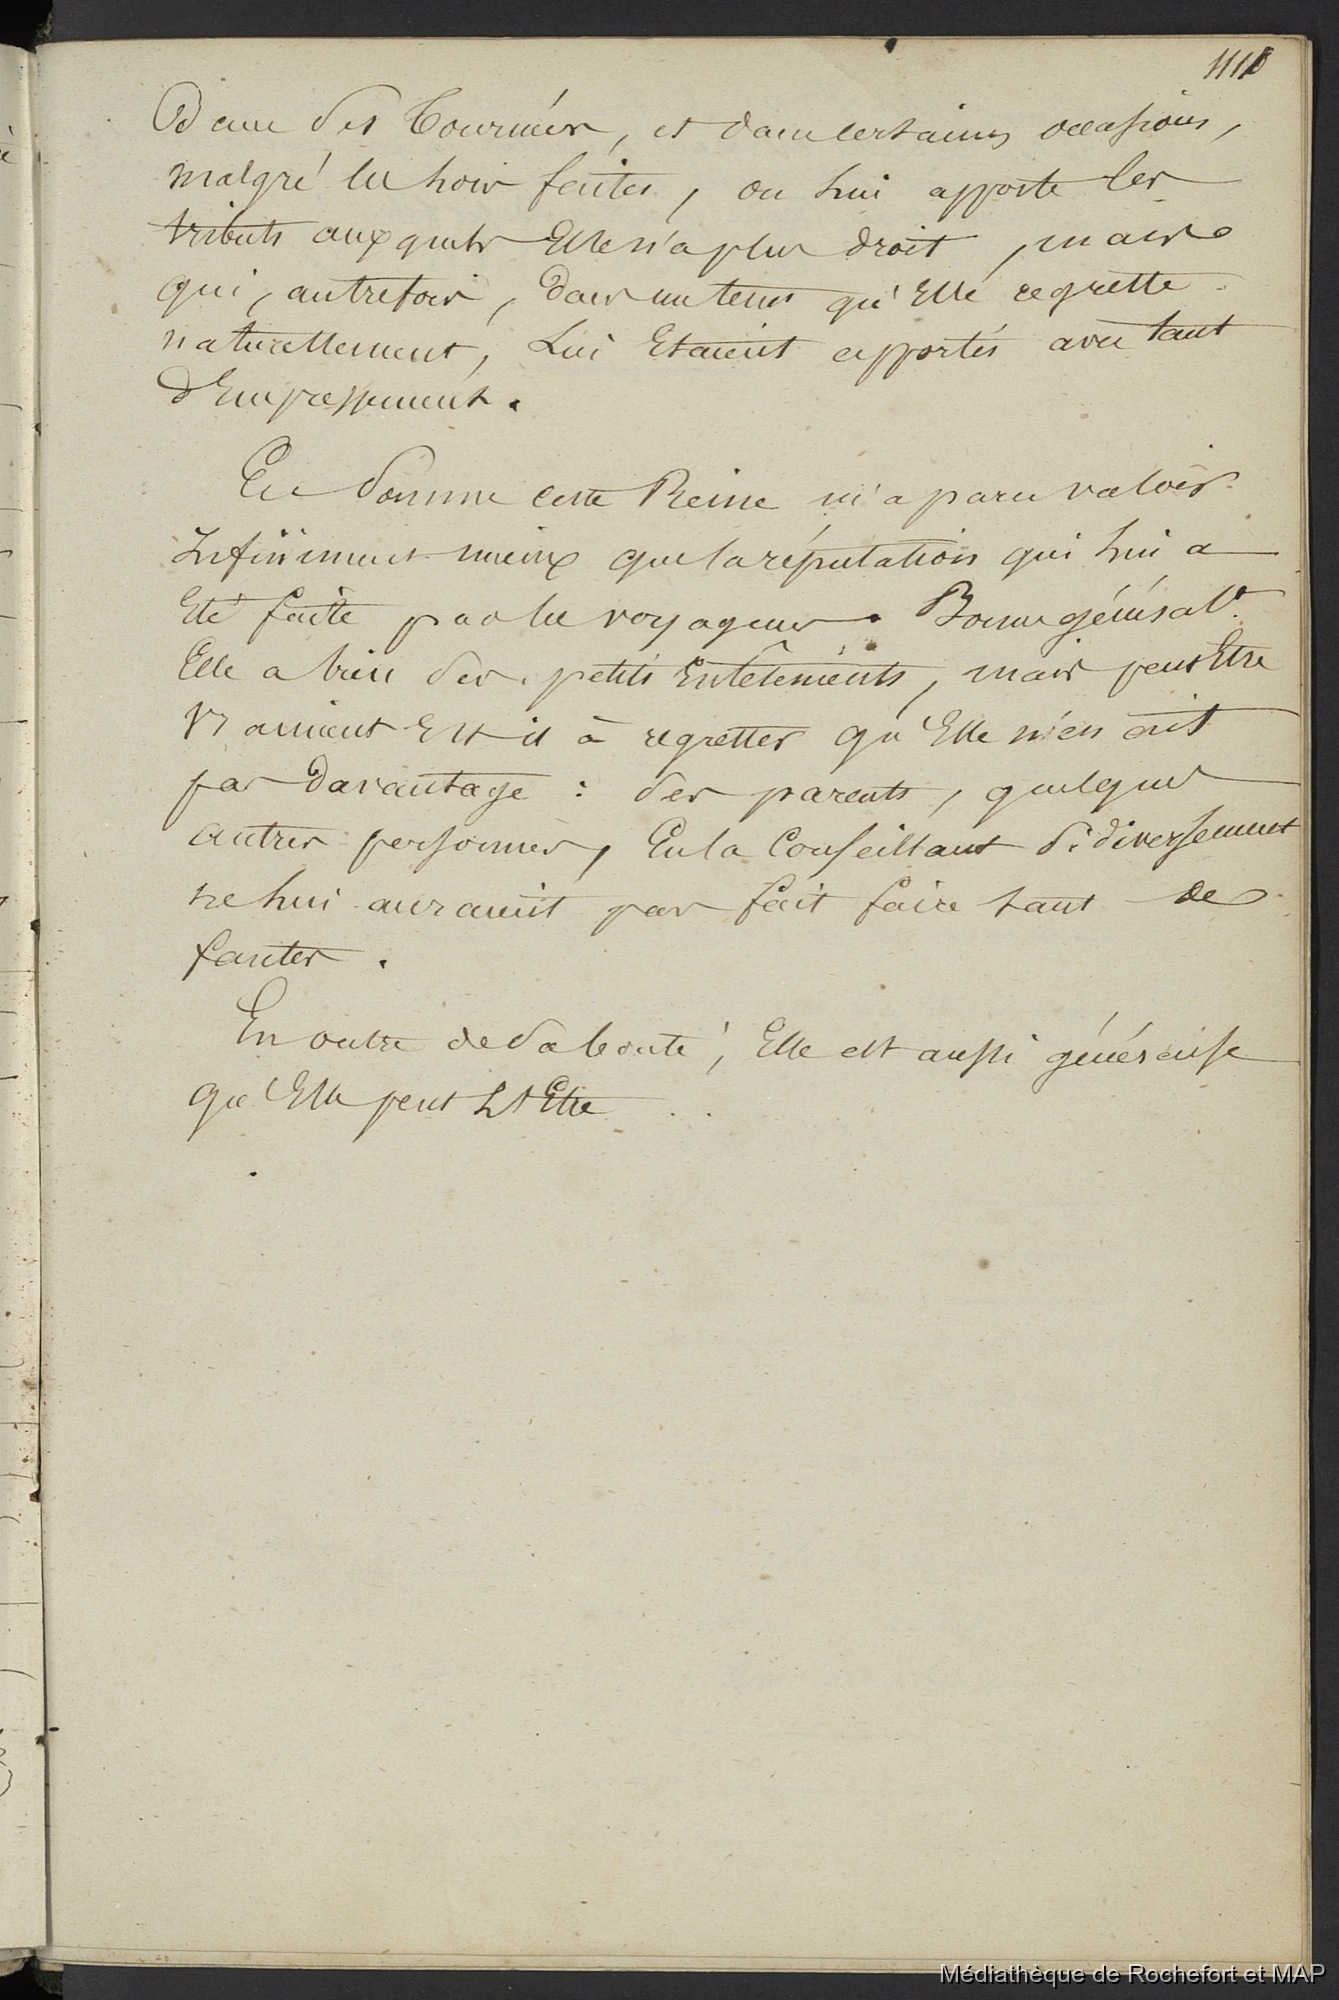 1110
Dans ses tournées, et dans certaines occasions,
malgré les trois fautes, on lui apporte les
tributs auxquels Elle n'a plus droit, mais
qui, autrefois, dans un tems qu'Elle regrette
naturellement, Lui Etaient apportés avec tant
d'Empressement.
En somme cette Reine m'a paru valoir
Infiniment mieux que la réputation qui lui a
Eté faite par les voyageurs. Bonne généralt.
Elle a bien des petits Entêtements, mais peut Etre
vraiment Est-il à regretter qu'Elle n'en ait
pas Davantage : des parents, quelques
autres personnes, En la Conseillant si diversement
ne lui auraient pas fait faire tant de
fautes.
En outre de sa bonté, Elle est aussi généreuse
qu'Elle peut L'Etre . .
Médiathèque de Rochefort et MAP